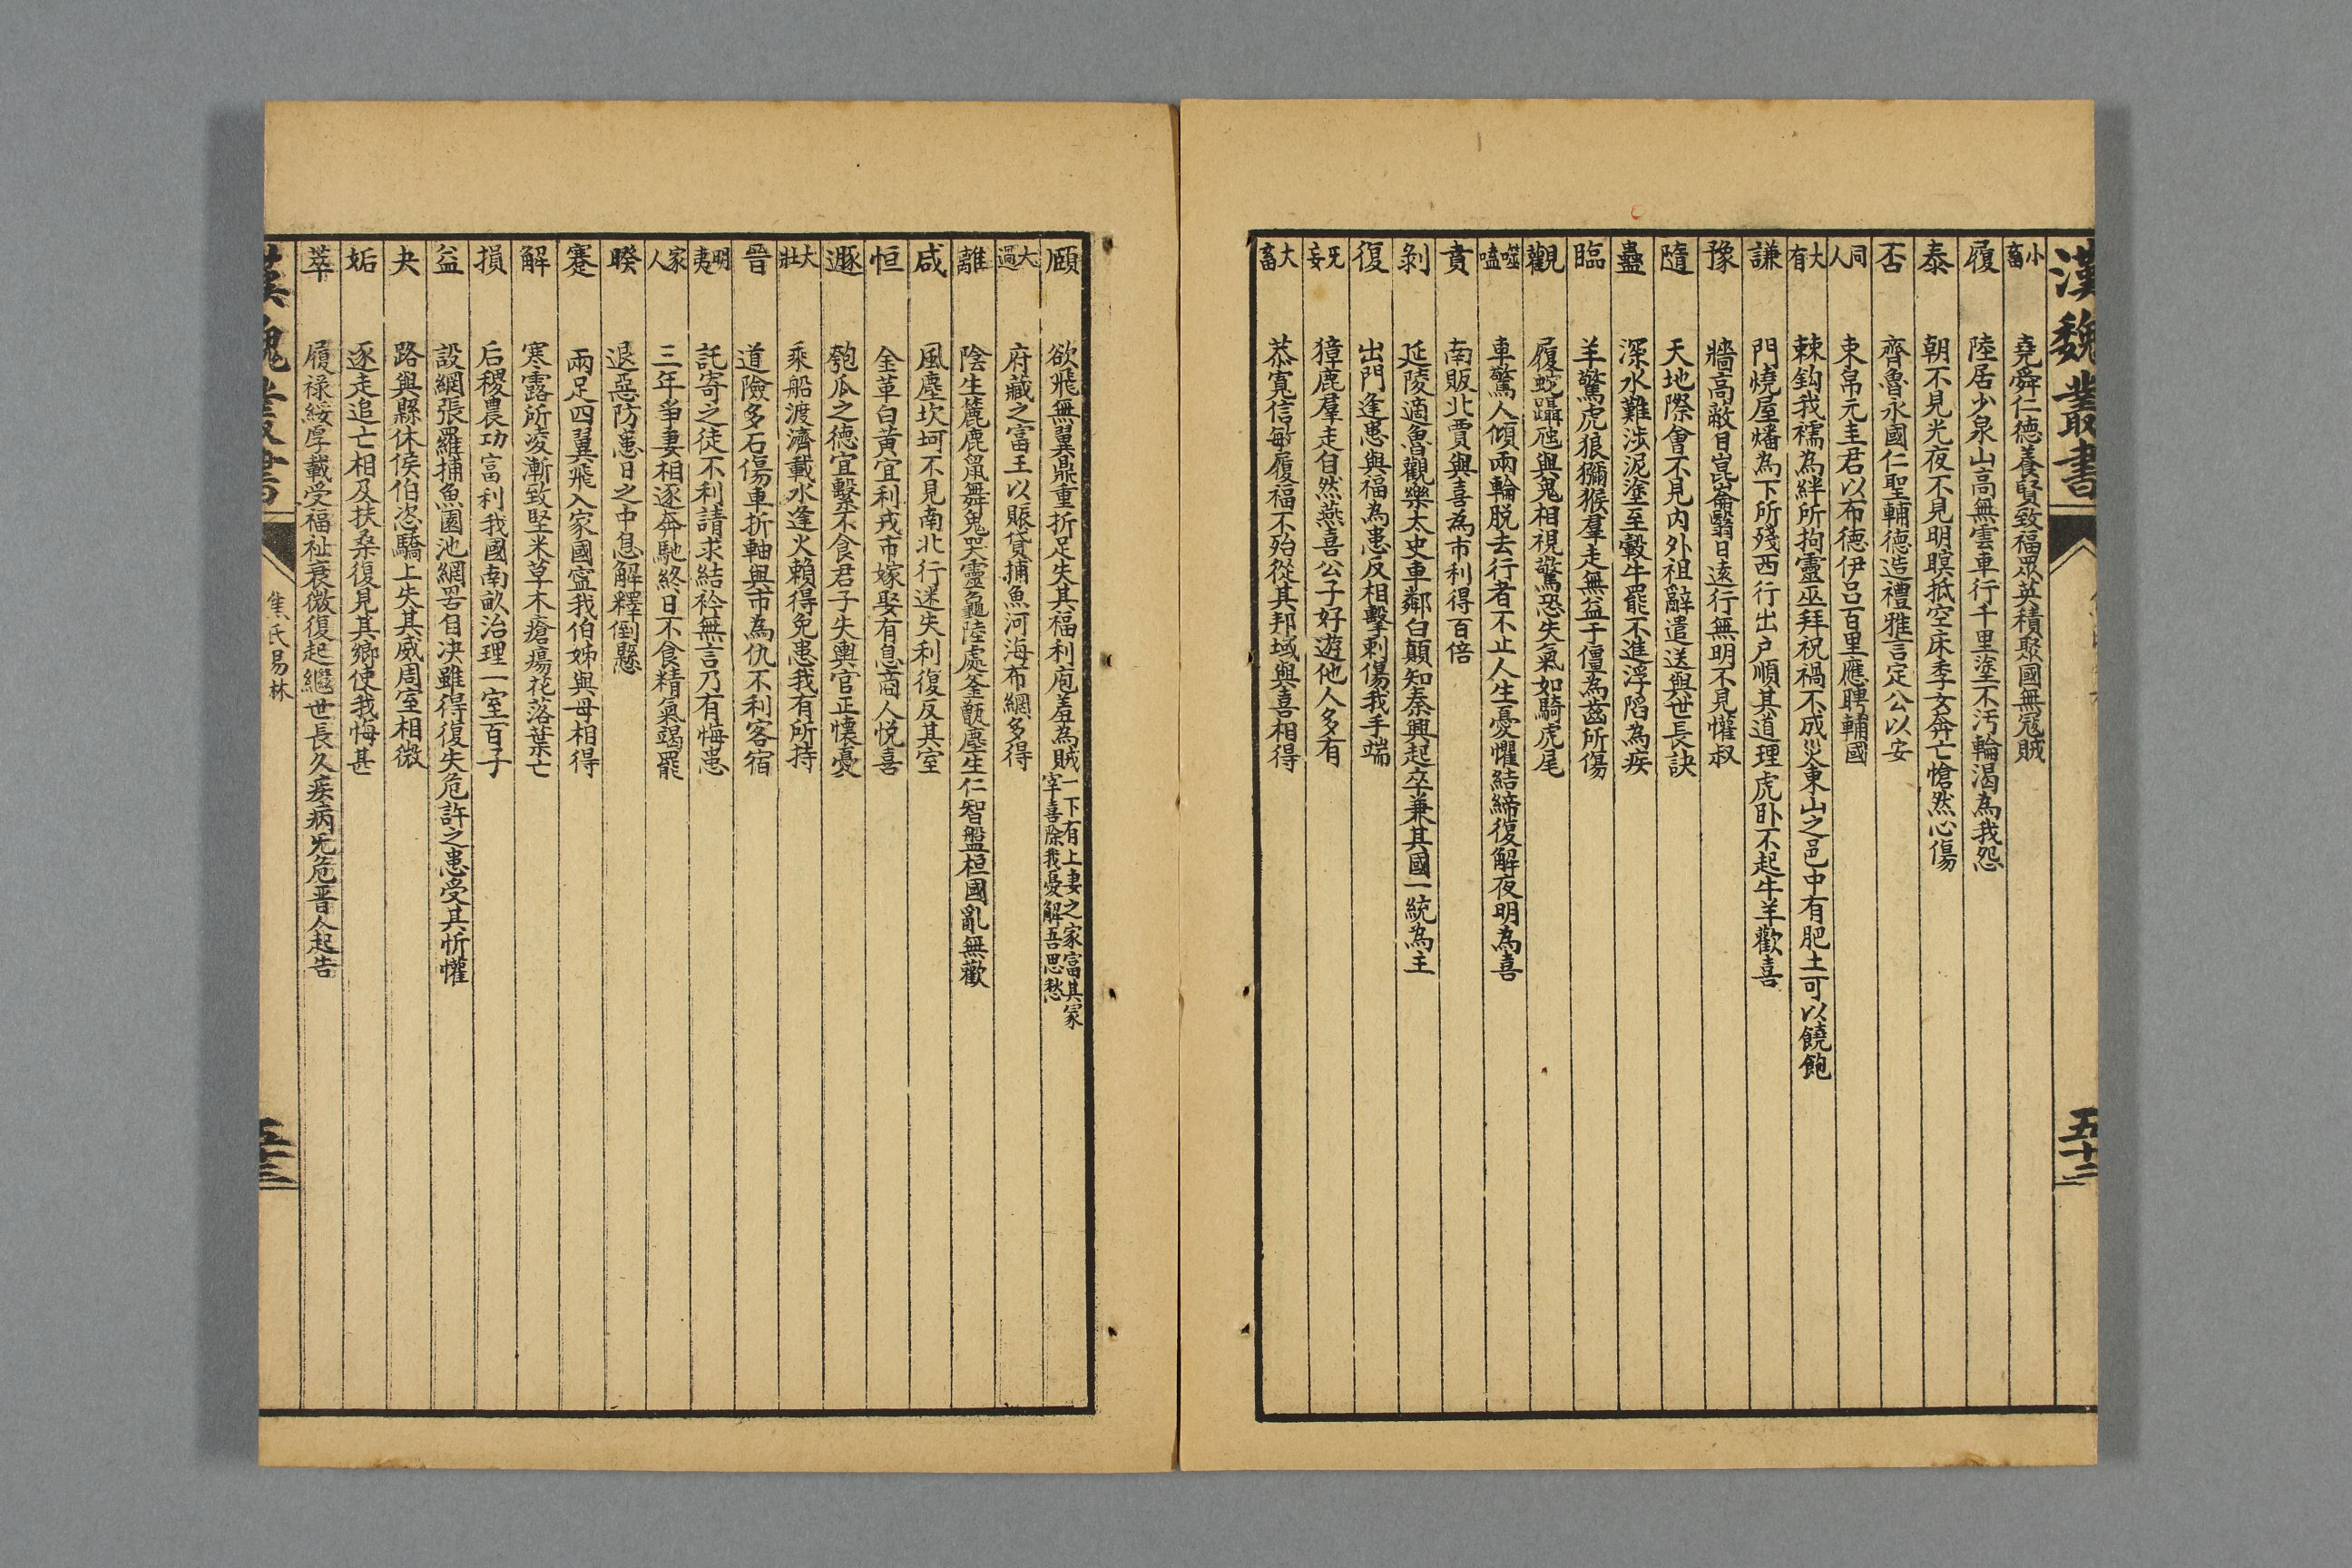 漢魏叢書
五十二
小畜 堯舜仁德養賢致福眾英積聚國無寇賊
履 陸居少泉山高無雲車行千里塗不汚輪渴為我怨
泰 朝不見光夜不見明暝抵空床季女奔亡愴然心傷
否 齊魯永國仁聖輔德造禮雅言定公以安
同人 束帛元圭君以布德伊呂百里應聘輔國
大有 棘鈎我襦為絆所拘靈巫拜祝禍不成災東山之邑中有肥土可以饒飽
謙 門燒屋燔為下所殘西行出戶順其道理虎卧不起牛羊歡喜
豫 牆高蔽目崑崙翳日遠行無明不見懽叔
隨 天地際會不見內外祖辭遣送與世長訣
蠱 深水難涉泥塗至轂牛罷不進浮陷為疾
臨 羊驚虎狼獼猴羣走無益于僵為齒所傷
觀 履蛇躡虺與鬼相視驚恐失氣如騎虎尾
噬嗑 車驚人傾兩輪脫去行者不止人生憂懼結締復解夜明為喜
賁 南販北賈與喜為市利得百倍
剝 延陵適魯觀樂太史車鄰白顛知秦興起卒兼其國一統為主
復 出門逢患與福為患反相擊刺傷我手端
无妄 獐鹿羣走自然燕喜公子好遊他人多有
大畜 恭寬信敏履福不殆從其邦域與喜相得
頤 欲飛無翼鼎重折足失其福利庖羞為賊一下有上妻之家富其家宰喜除我憂解吾思愁
大過 府藏之富王以賑貸捕魚河海布網多得
離 陰生麓鹿鼠舞鬼哭靈龜陸處釜甑塵生仁智盤桓國亂無歡
咸 風塵坎坷不見南北行迷失利復反其室
恒 金革白黃宜利戎市嫁娶有息商人悅喜
遯 匏瓜之德宜繫不食君子失輿官正懷憂
大壯 乘船渡濟載水逢火賴得免患我有所恃
晉 道險多石傷車折軸與市為仇不利客宿
明夷 託寄之徒不利請求結衿無言乃有悔患
家人 三年爭妻相逐奔馳終日不食精氣竭罷
睽 退惡防患日之中息解釋倒懸
蹇 兩足四翼飛入家國寧我伯姊與母相得
解 寒露所凌漸致堅米草木瘡瘍花落葉亡
損 后稷農功富利我國南畝治理一室百子
益 設網張羅捕魚園池網罟自决雖得復失危許之患受其忻懽
夬 路與縣休侯伯恣驕上失其威周室相微
姤 逐走追亡相及扶桑復見其鄉使我悔甚
萃 履祿綏厚載受福祉衰微復起繼世長久疾病旡危晋人起告
漢魏叢書
焦氏易林
五十三